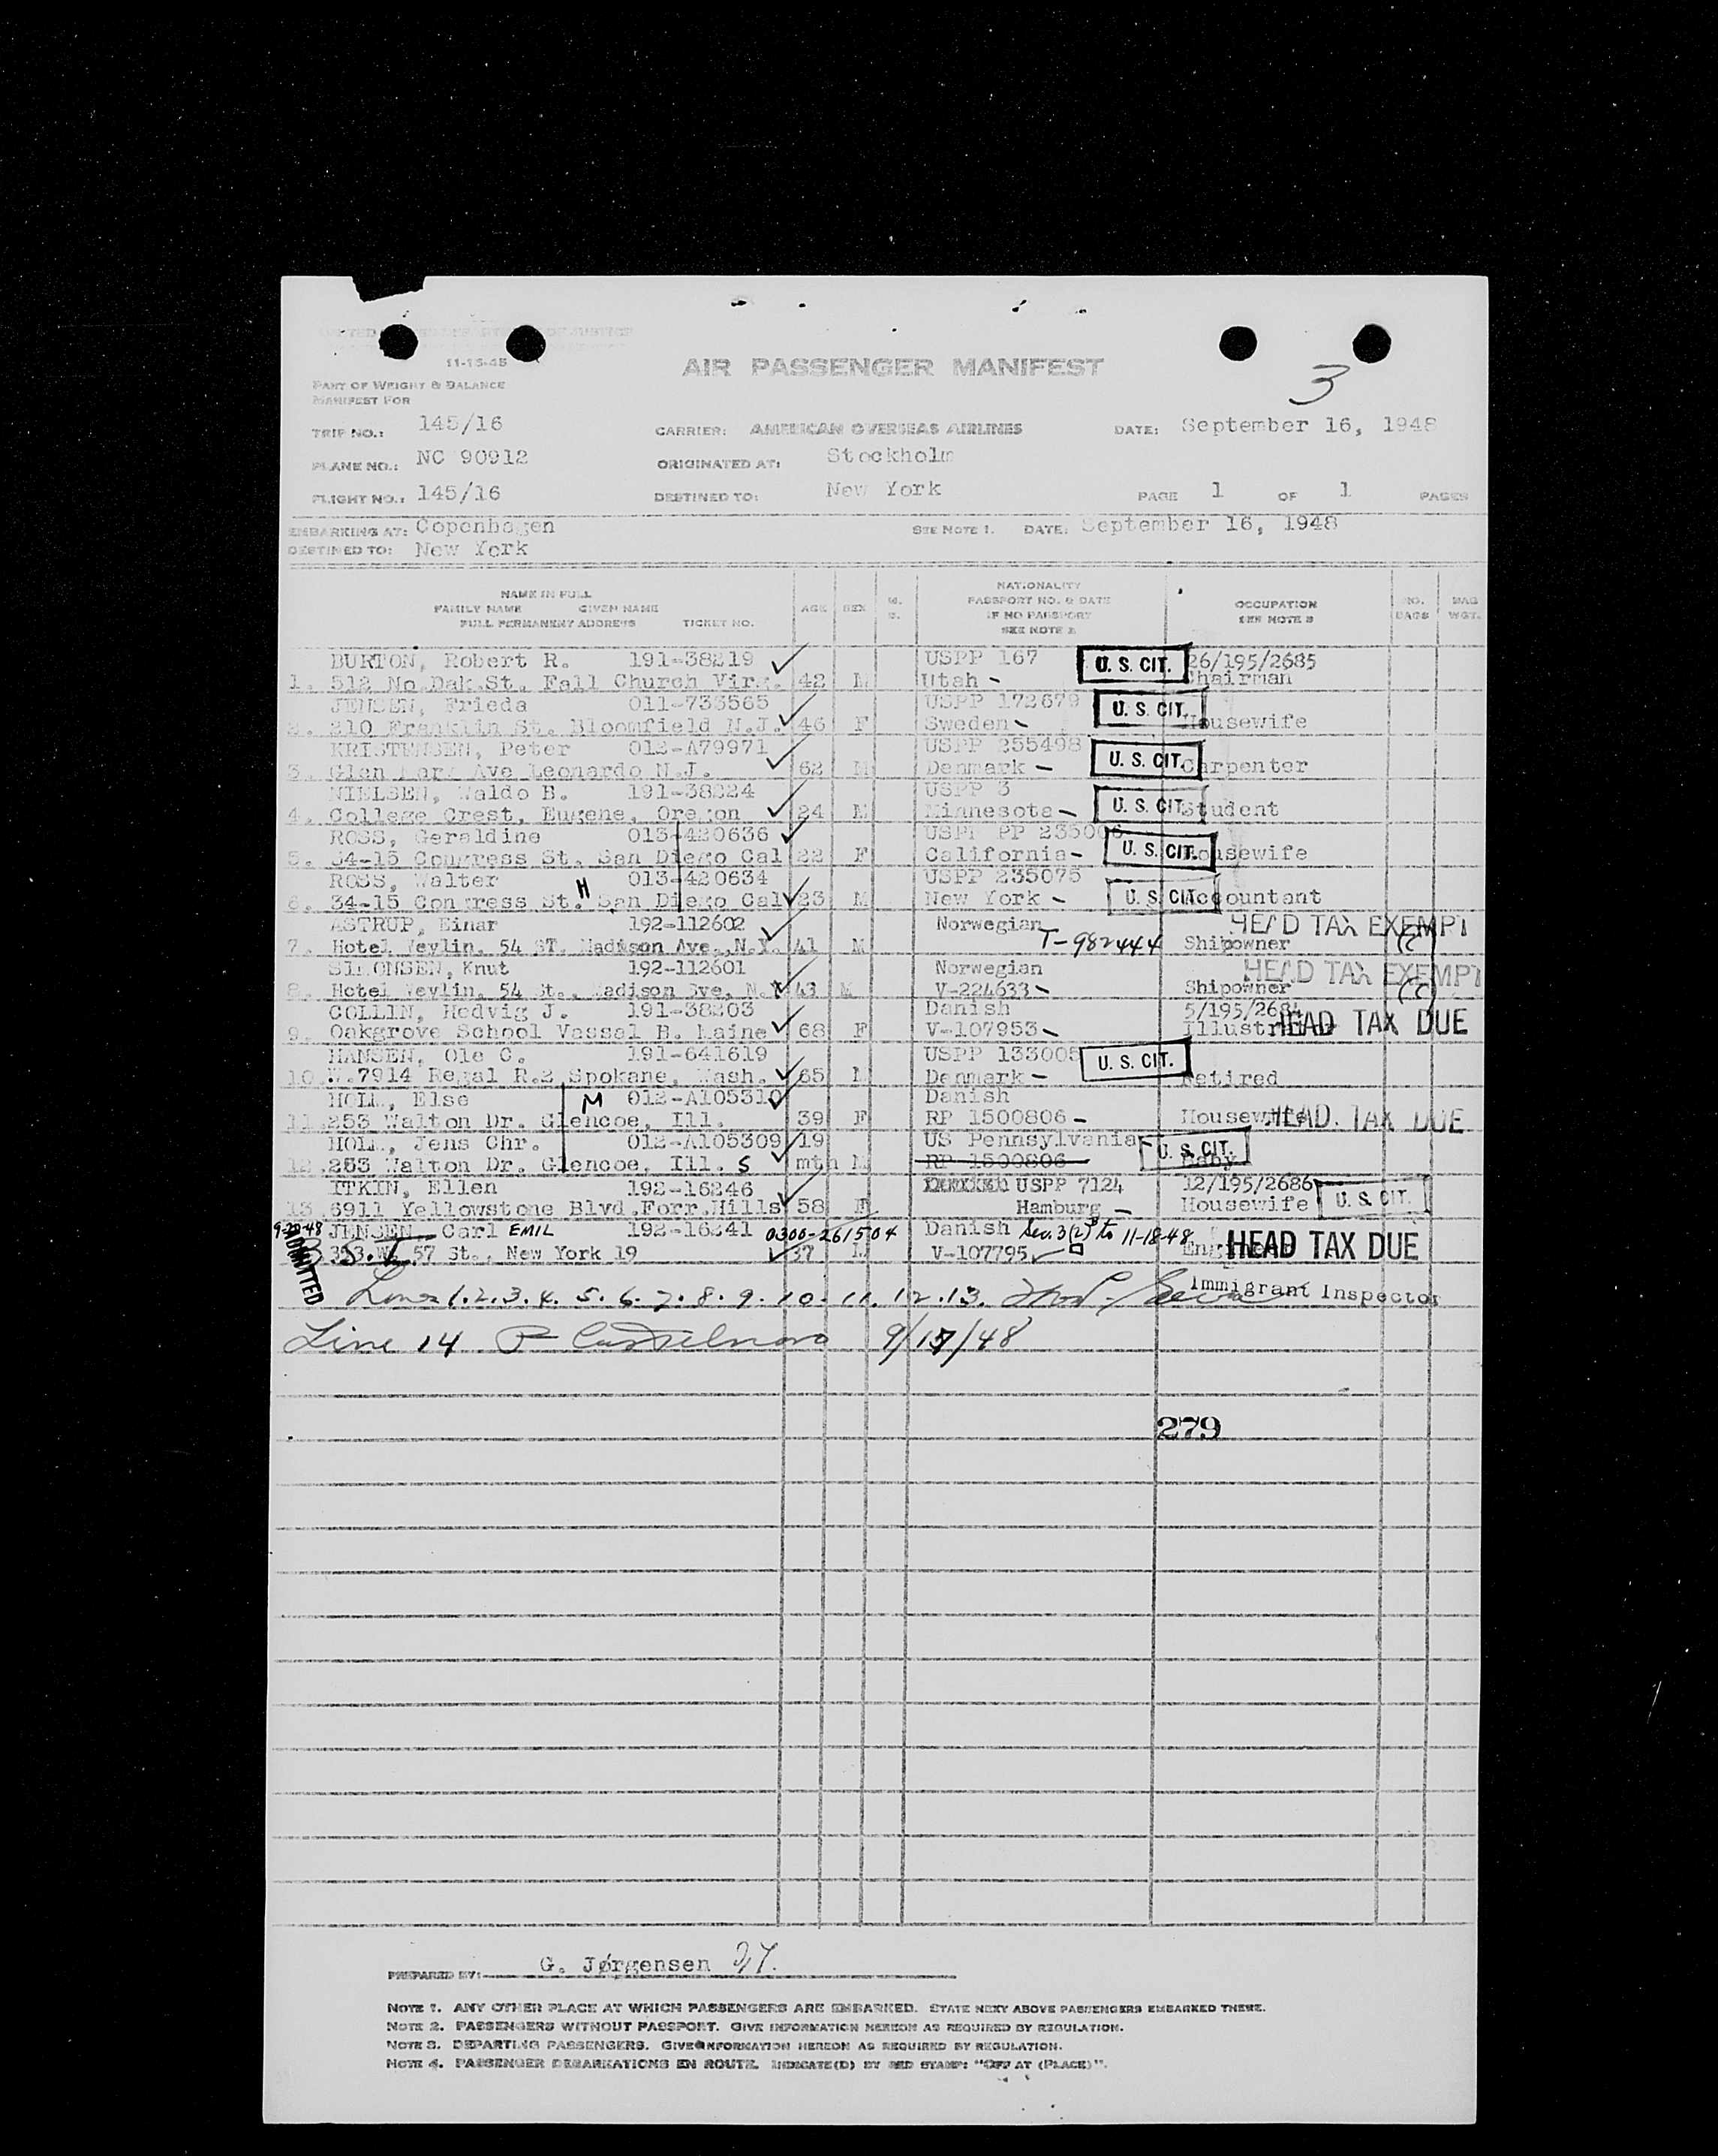 11-15-45
AIR PASSENGER MANIFEST
3
PART OF WEIGHT & BALANCE
MANIFEST FOR
TRIP NO.: 145/16 CARRIER: AMERICAN OVERSEAS AIRLINES DATE: September 16, 1948
PLANE NO.: NC 90912 ORIGINATED AT: Stockholm
FLIGHT NO.: 145/16 DESTINED TO: New York PAGE 1 OF 1 PAGES
EMBARKING AT: Copenhagen SEE NOTE 1. DATE: September 16, 1948
DESTINED TO: New York
NAME IN FULL
FAMILY NAME GIVEN NAME
FULL PERMANENT ADDRESS TICKET NO.
AGE SEX
NATIONALITY
PASSPORT NO. & DATE
IF NO PASSPORT
SEE NOTE 2
OCCUPATION
SEE NOTE 3
NO. BAGS
BAG WGT.
BURTON, Robert R. 191-38219 USPP 167 U. S. CIT. 26/195/2685
1. 512 No.Dak.St. Fall Church Virg. 42 M Utah - Chairman
JENSEN, Frieda 011-733565 USPP 172679 U. S. CIT.
2. 210 Franklin St. Bloomfield N.J. 46 F Sweden - Housewife
KRISTENSEN, Peter 012-A79971 USPP 255498 U. S. CIT.
3. Glen Mary Ave Leonardo N.J. 62 M Denmark - Carpenter
NIELSEN, Waldo B. 191-38224 USPP 3 U. S. CIT.
4. College Crest, Eugene, Oregon 24 M Minnesota - Student
ROSS, Geraldine 013-420636 PP 235006 U. S. CIT.
5. 34-15 Congress St. San Diego Cal 22 F California - Housewife
ROSS, Walter H 013-420634 USPP 235075 U. S. CIT.
6. 34-15 Congress St. San Diego Cal 23 M New York - Accountant
ASTRUP, Einar 192-112602 Norwegian HEAD TAX EXEMPT
7. Hotel Weylin, 54 ST. Madison Ave., N.Y. 41 M T-982444 Shipowner
SIMONSEN, Knut 192-112601 Norwegian HEAD TAX EXEMPT
8. Hotel Weylin, 54 St., Madison Ave, N.Y. 43 M V-224633 - Shipowner
COLLIN, Hedvig J. 191-38203 Danish 5/195/2684
9. Oakgrove School Vassal B. Maine 68 F V-107953 - HEAD TAX DUE
HANSEN, Ole C. 191-641619 USPP 133005 U. S. CIT.
10. W.7914 Regal R.2 Spokane, Wash. 65 M Denmark - Retired
HOLM, Else M 012-A105310 Danish
11. 253 Walton Dr. Glencoe, Ill. 39 F RP 1500806 - Housewife HEAD TAX DUE
HOLM, Jens Chr. 012-A105309 19 US Pennsylvania U. S. CIT.
12. 253 Walton Dr. Glencoe, Ill. S mth M RP 1500806 Baby
ITKIN, Ellen 192-16246 USPP 7124 12/195/2686
13. 6911 Yellowstone Blvd.Forr.Hills 58 F Hamburg - Housewife U. S. CIT.
9-20-48 JENSEN, Carl EMIL 192-16241 0300-261504 Danish Sec. 3(2) to 11-18-48
ADMITTED S.I. 57 St., New York 19 37 M V-107795 HEAD TAX DUE
Lines 1.2.3.4. 5.6.7.8.9.10.11.12.13. Immigrant Inspector
Line 14 9/17/48
279
PREPARED BY: G. Jørgensen
NOTE 1. ANY OTHER PLACE AT WHICH PASSENGERS ARE EMBARKED. STATE NEXT ABOVE PASSENGERS EMBARKED THERE.
NOTE 2. PASSENGERS WITHOUT PASSPORT. GIVE INFORMATION HEREON AS REQUIRED BY REGULATION.
NOTE 3. DEPARTING PASSENGERS. GIVE INFORMATION HEREON AS REQUIRED BY REGULATION.
NOTE 4. PASSENGER DEBARKATIONS EN ROUTE. INDICATE(D) BY RED STAMP: "OFF AT (PLACE)".